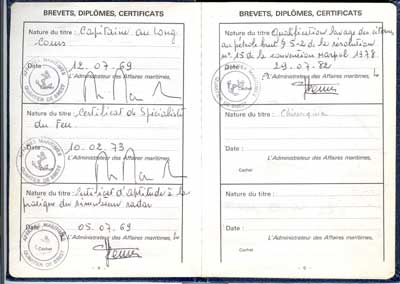 BREVETS, DIPLÔMES, CERTIFICATS
Nature du titre : Capitaine au long-
Cours
Date : 12.07.69
L'Administrateur des Affaires maritimes,
AFFAIRES MARITIMES
QUARTIER DE BREST
Nature du titre : Certificat de Spécialiste
du Feu.
Date : 10.02.73
L'Administrateur des Affaires maritimes,
Nature du titre : Certificat d'aptitude à la
pratique du simulateur radar
Date : 05.07.69
L'Administrateur des Affaires maritimes,
Cachet
BREVETS, DIPLÔMES, CERTIFICATS
Nature du titre : Qualification lavage des citernes
au pétrole brut § 5-2 de la résolution
n° 15 de la convention Marpol 1978.
Date : 29.07.82
L'Administrateur des Affaires maritimes,
Nature du titre :
Date :
L'Administrateur des Affaires maritimes,
Cachet
Nature du titre :
Date :
L'Administrateur des Affaires maritimes,
Cachet